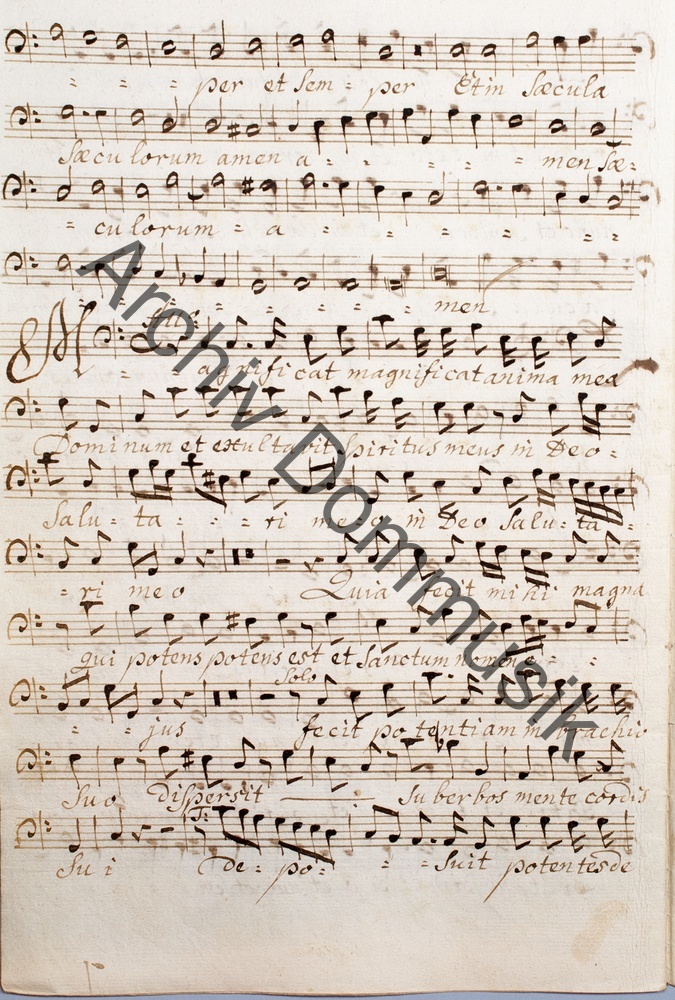 = = = per et sem = per Et in Sæcula
Sæcu lorum amen a = = = = = men Sæ=
= cu lorum = a = = = = =
= = = = = = = men
Magnificat magnificat anima mea
Dominum et exultavit Spiritus meus in Deo =
Salu = ta = = = ri me = o in Deo Salu = ta =
= ri me o Quia fecit mihi magna
qui potens potens est et Sanctum nomen e = =
Solo
= = jus fecit potentiam in brachio
Suo dispersit ——— Suberbos mente cordis
Su i De = po = = = Suit potentes de
Archiv Dommusik